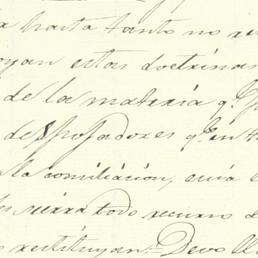 hasta tanto no re
oyan estas doctrinas
de la materia q.
despojadores q.e en
la conciliacion, seria
cierra todo recurso
restituyan. Devo